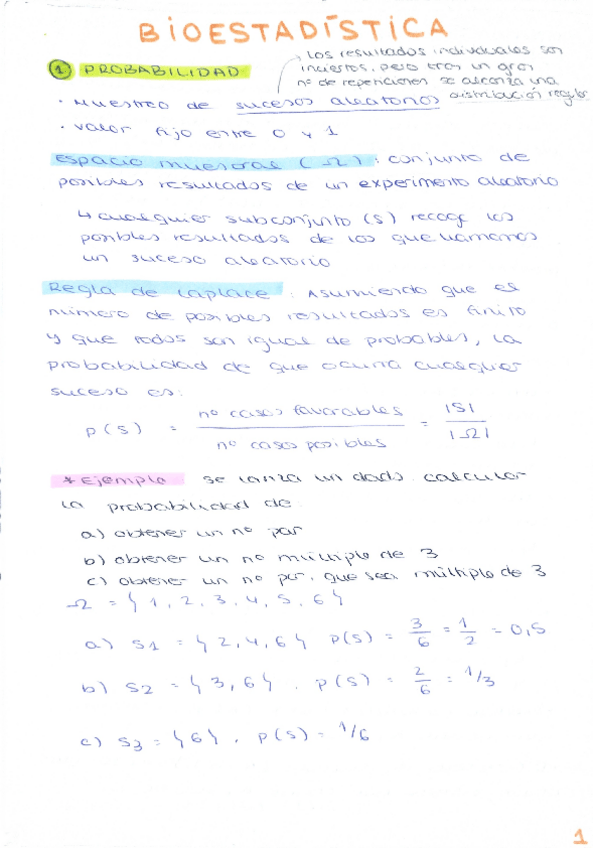 BIOESTADÍSTICA
Los resultados individuales son
inciertos, pero tras un gran
nº de repeticiones se alcanza una
distribución regular
1 PROBABILIDAD
· Muestreo de sucesos aleatorios
· Valor fijo entre 0 y 1
Espacio muestral (Ω): conjunto de
posibles resultados de un experimento aleatorio
↳ cualquier subconjunto (s) recoge los
posibles resultados de los que llamamos
un suceso aleatorio
Regla de Laplace: Asumiendo que es
número de posibles resultados es finito
y que todos son igual de probables, la
probabilidad de que ocurra cualquier
suceso es:
p(s) = nº casos favorables / nº casos posibles = |S| / |Ω|
* Ejemplo se lanza un dado. calcular
la probabilidad de:
a) obtener un nº par
b) obtener un nº múltiple de 3
c) obtener un nº par, que sea múltiplo de 3
Ω = {1, 2, 3, 4, 5, 6}
a) S1 = {2, 4, 6} p(s) = 3/6 = 1/2 = 0,5
b) S2 = {3, 6}. p(s) = 2/6 = 1/3
c) S3 = {6}. p(s) = 1/6
1